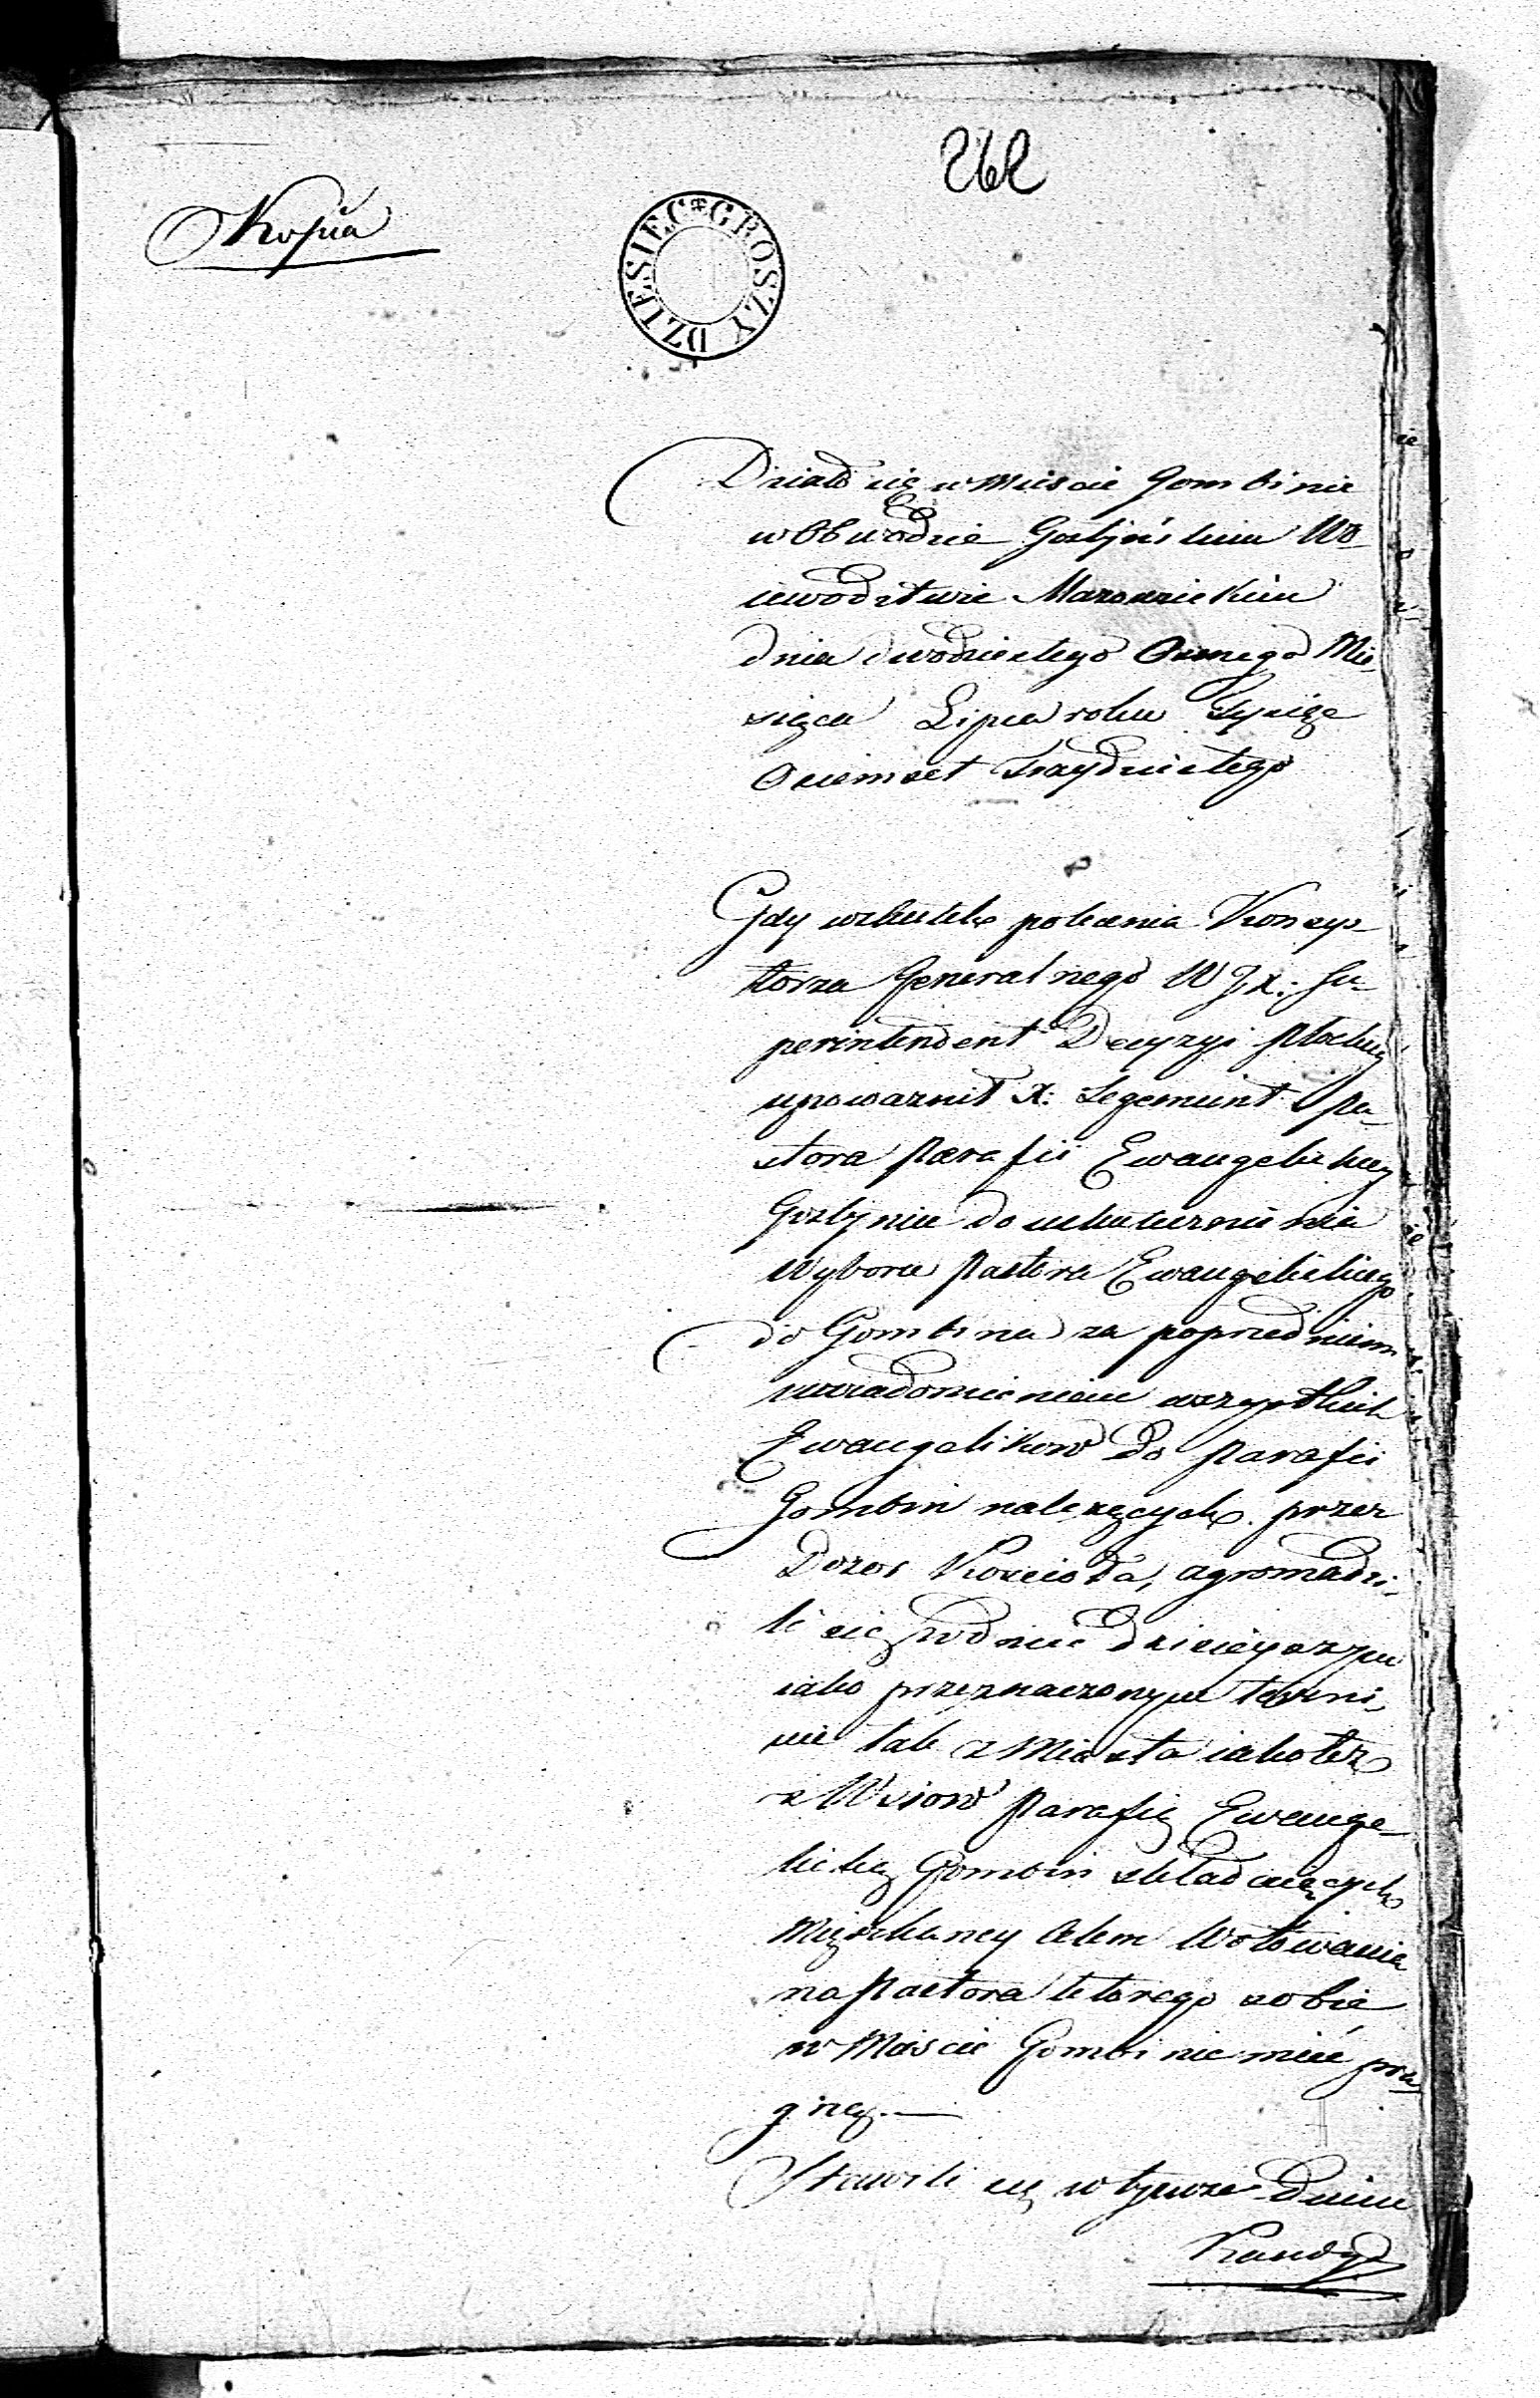 262
Kopia
DZIESIĘC GROSZY
Działo się w Mieście Gombinie
w Obwodzie Gostyńskim Wo-
iewodztwie Mazowieckim
dnia dwudziestego Osmego Mie-
siąca Lipca roku Tysiąc
Osiemset Trzydziestego
Gdy wskutek polecenia Konsys-
torza Generalnego W J X: Su-
perintendent Dyecezyi Płockiey
upoważnił X: Pa-
stora Parafii Ewangelickiey
Gostynin do uskutecznienia
Wyboru Pastora Ewangelickiego
do Gombina za poprzedniem
uwiadomieniem wszystkich
Ewangelikow do Parafii
Gombin należących przez
Dozor Kościoła, zgromadzi-
li się w dniu dzisieyszym
iako przeznaczonym termi-
nie tak z Miasta iakoteż
z Wsiow Parafię Ewange-
licką Gombin składaiących
Mięszkancy celem Wotowania
na Pastora ktorego sobie
w Mieście Gombinie mieć pra-
gną.—
Stawili się w tymze Dniu
Kandy